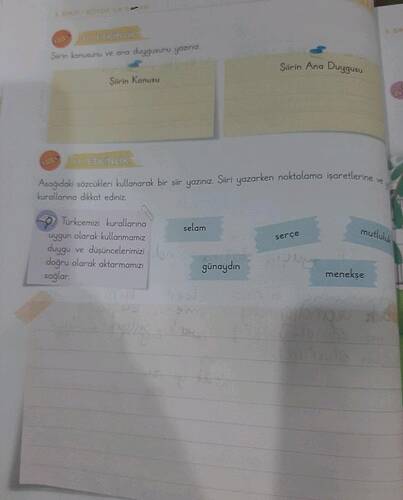 ETKİNLİK
Şiirin konusunu ve ana duygusunu yazınız.
Şiirin Konusu
Şiirin Ana Duygusu
ETKİNLİK
Aşağıdaki sözcükleri kullanarak bir şiir yazınız. Şiiri yazarken noktalama işaretlerine ve
kurallarına dikkat ediniz.
Türkçemizi kurallarına
uygun olarak kullanmamız
duygu ve düşüncelerimizi
doğru olarak aktarmamızı
sağlar.
selam
serçe
mutluluk
günaydın
menekşe